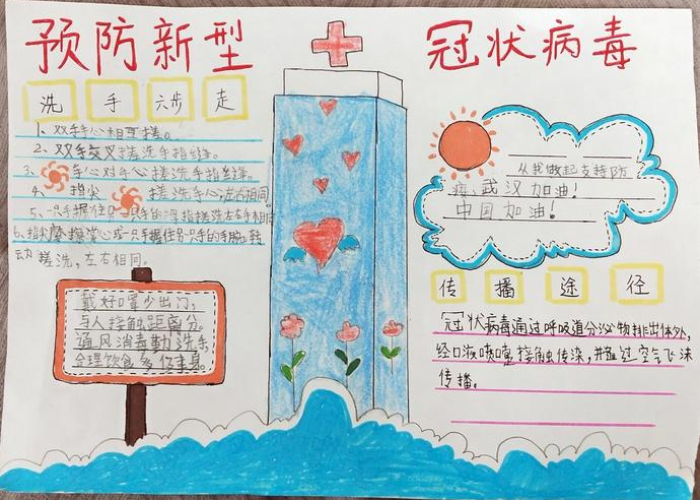 预防新型
冠状病毒
洗手六步走
1、双手手心相互搓。
2、双手交叉搓洗手指缝。
3、手心对手心搓洗手指缝。
4、指尖搓洗手心,左右相同。
5、一只手握住另一只手的拇指搓洗左右手相同
6、指尖摩擦掌心或一只手握住另一只手的手腕转
动搓洗,左右相同。
戴好口罩少出门,
与人接触距离分。
通风消毒勤洗手,
合理饮食多
从我做起支持防
疫,武汉加油!
中国加油!
传播途径
冠状病毒通过呼吸道分泌物排出体外,
经口液喷嚏接触传染,并通过空气飞沫
传播。